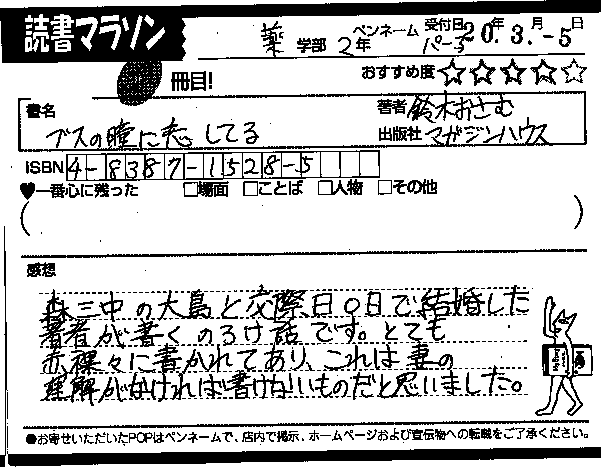 読書マラソン
薬 学部 2年 ペンネーム パーする 受付日 20年3月-5日
冊目! おすすめ度☆☆☆☆☆
書名 ブスの瞳に恋してる
著者 鈴木おさむ
出版社 マガジンハウス
ISBN 4-8387-1528-5
♥一番心に残った □場面 □ことば □人物 □その他
感想
森三中の大島と交際日0日で結婚した
著者が書くのろけ話です。とても
赤裸々に書かれてあり、これは妻の
理解がなければ書けないものだと思いました。
●お寄せいただいたPOPはペンネームで、店内で掲示、ホームページおよび宣伝物への転載をご了承ください。